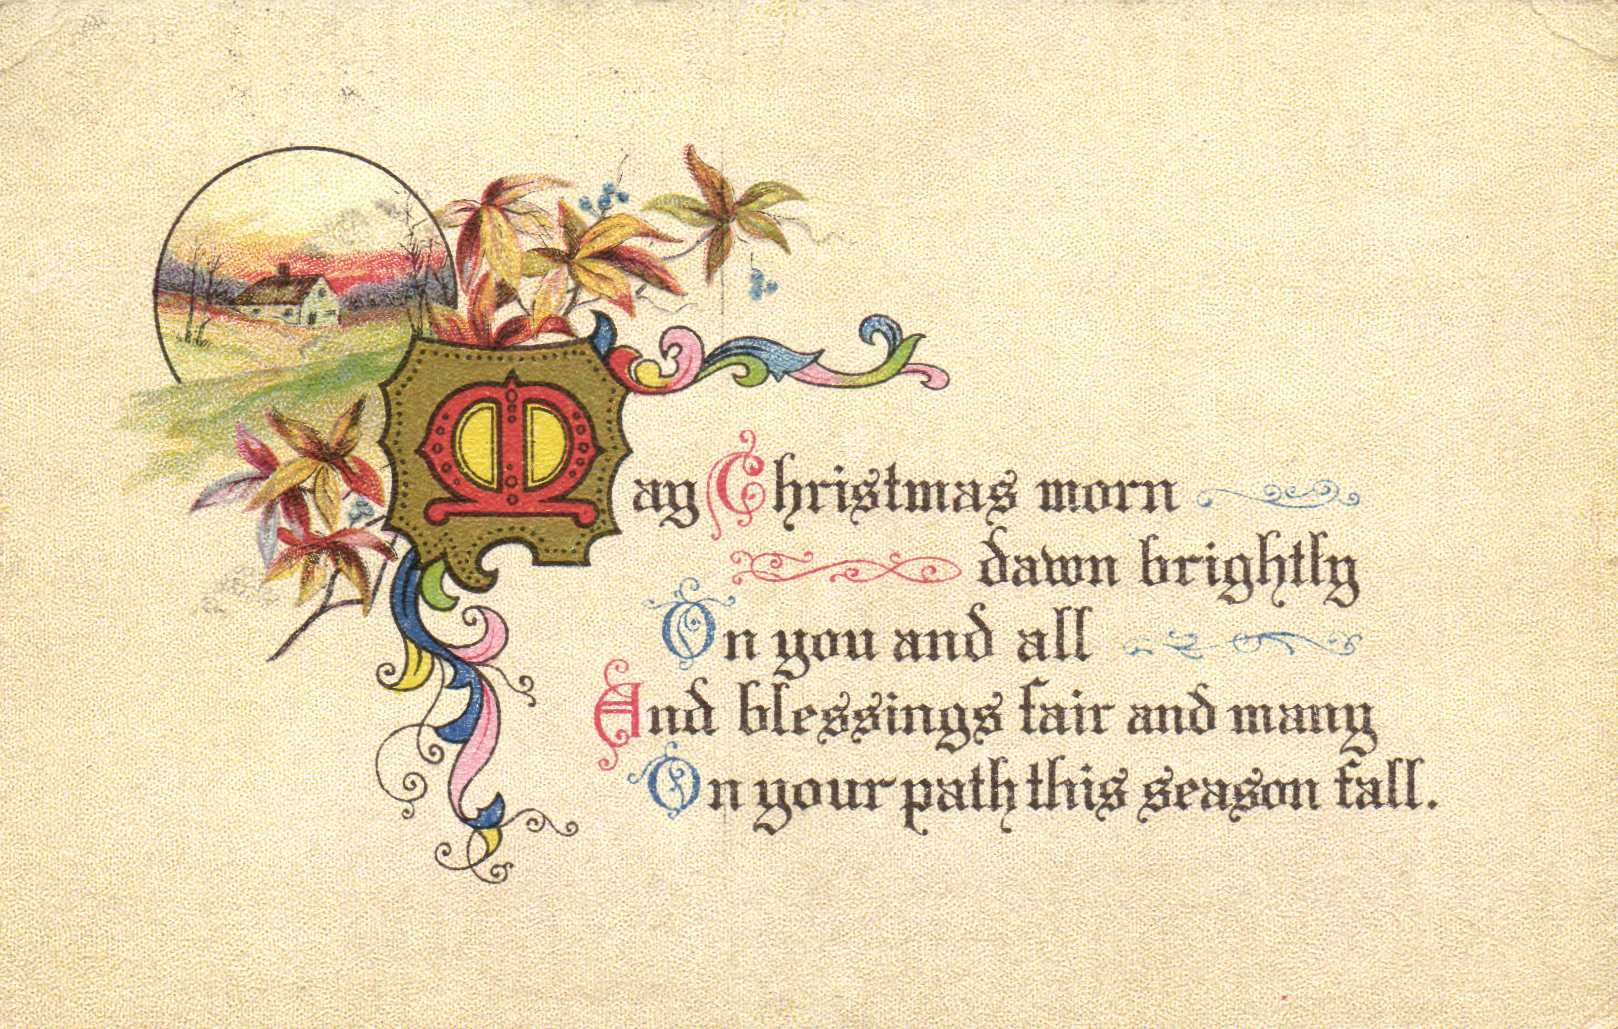 May Christmas morn
dawn brightly
On you and all
And blessings fair and many
On your path this season fall.